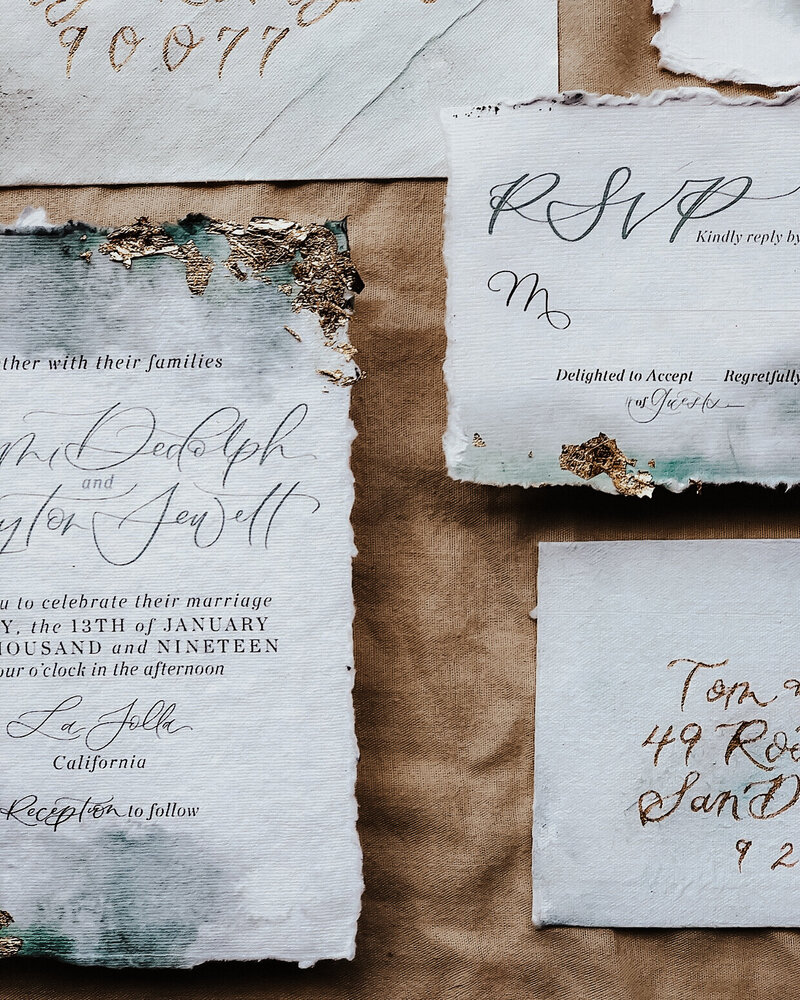 90077
ther with their families
m Dedolph
and
yton Sewell
u to celebrate their marriage
Y, the 13TH of JANUARY
HOUSAND and NINETEEN
our o'clock in the afternoon
La Jolla
California
Reception to follow
RSVP
Kindly reply by
M
Delighted to Accept __ Regretfully
# of Guests __
Tom
49 Ro
San D
92